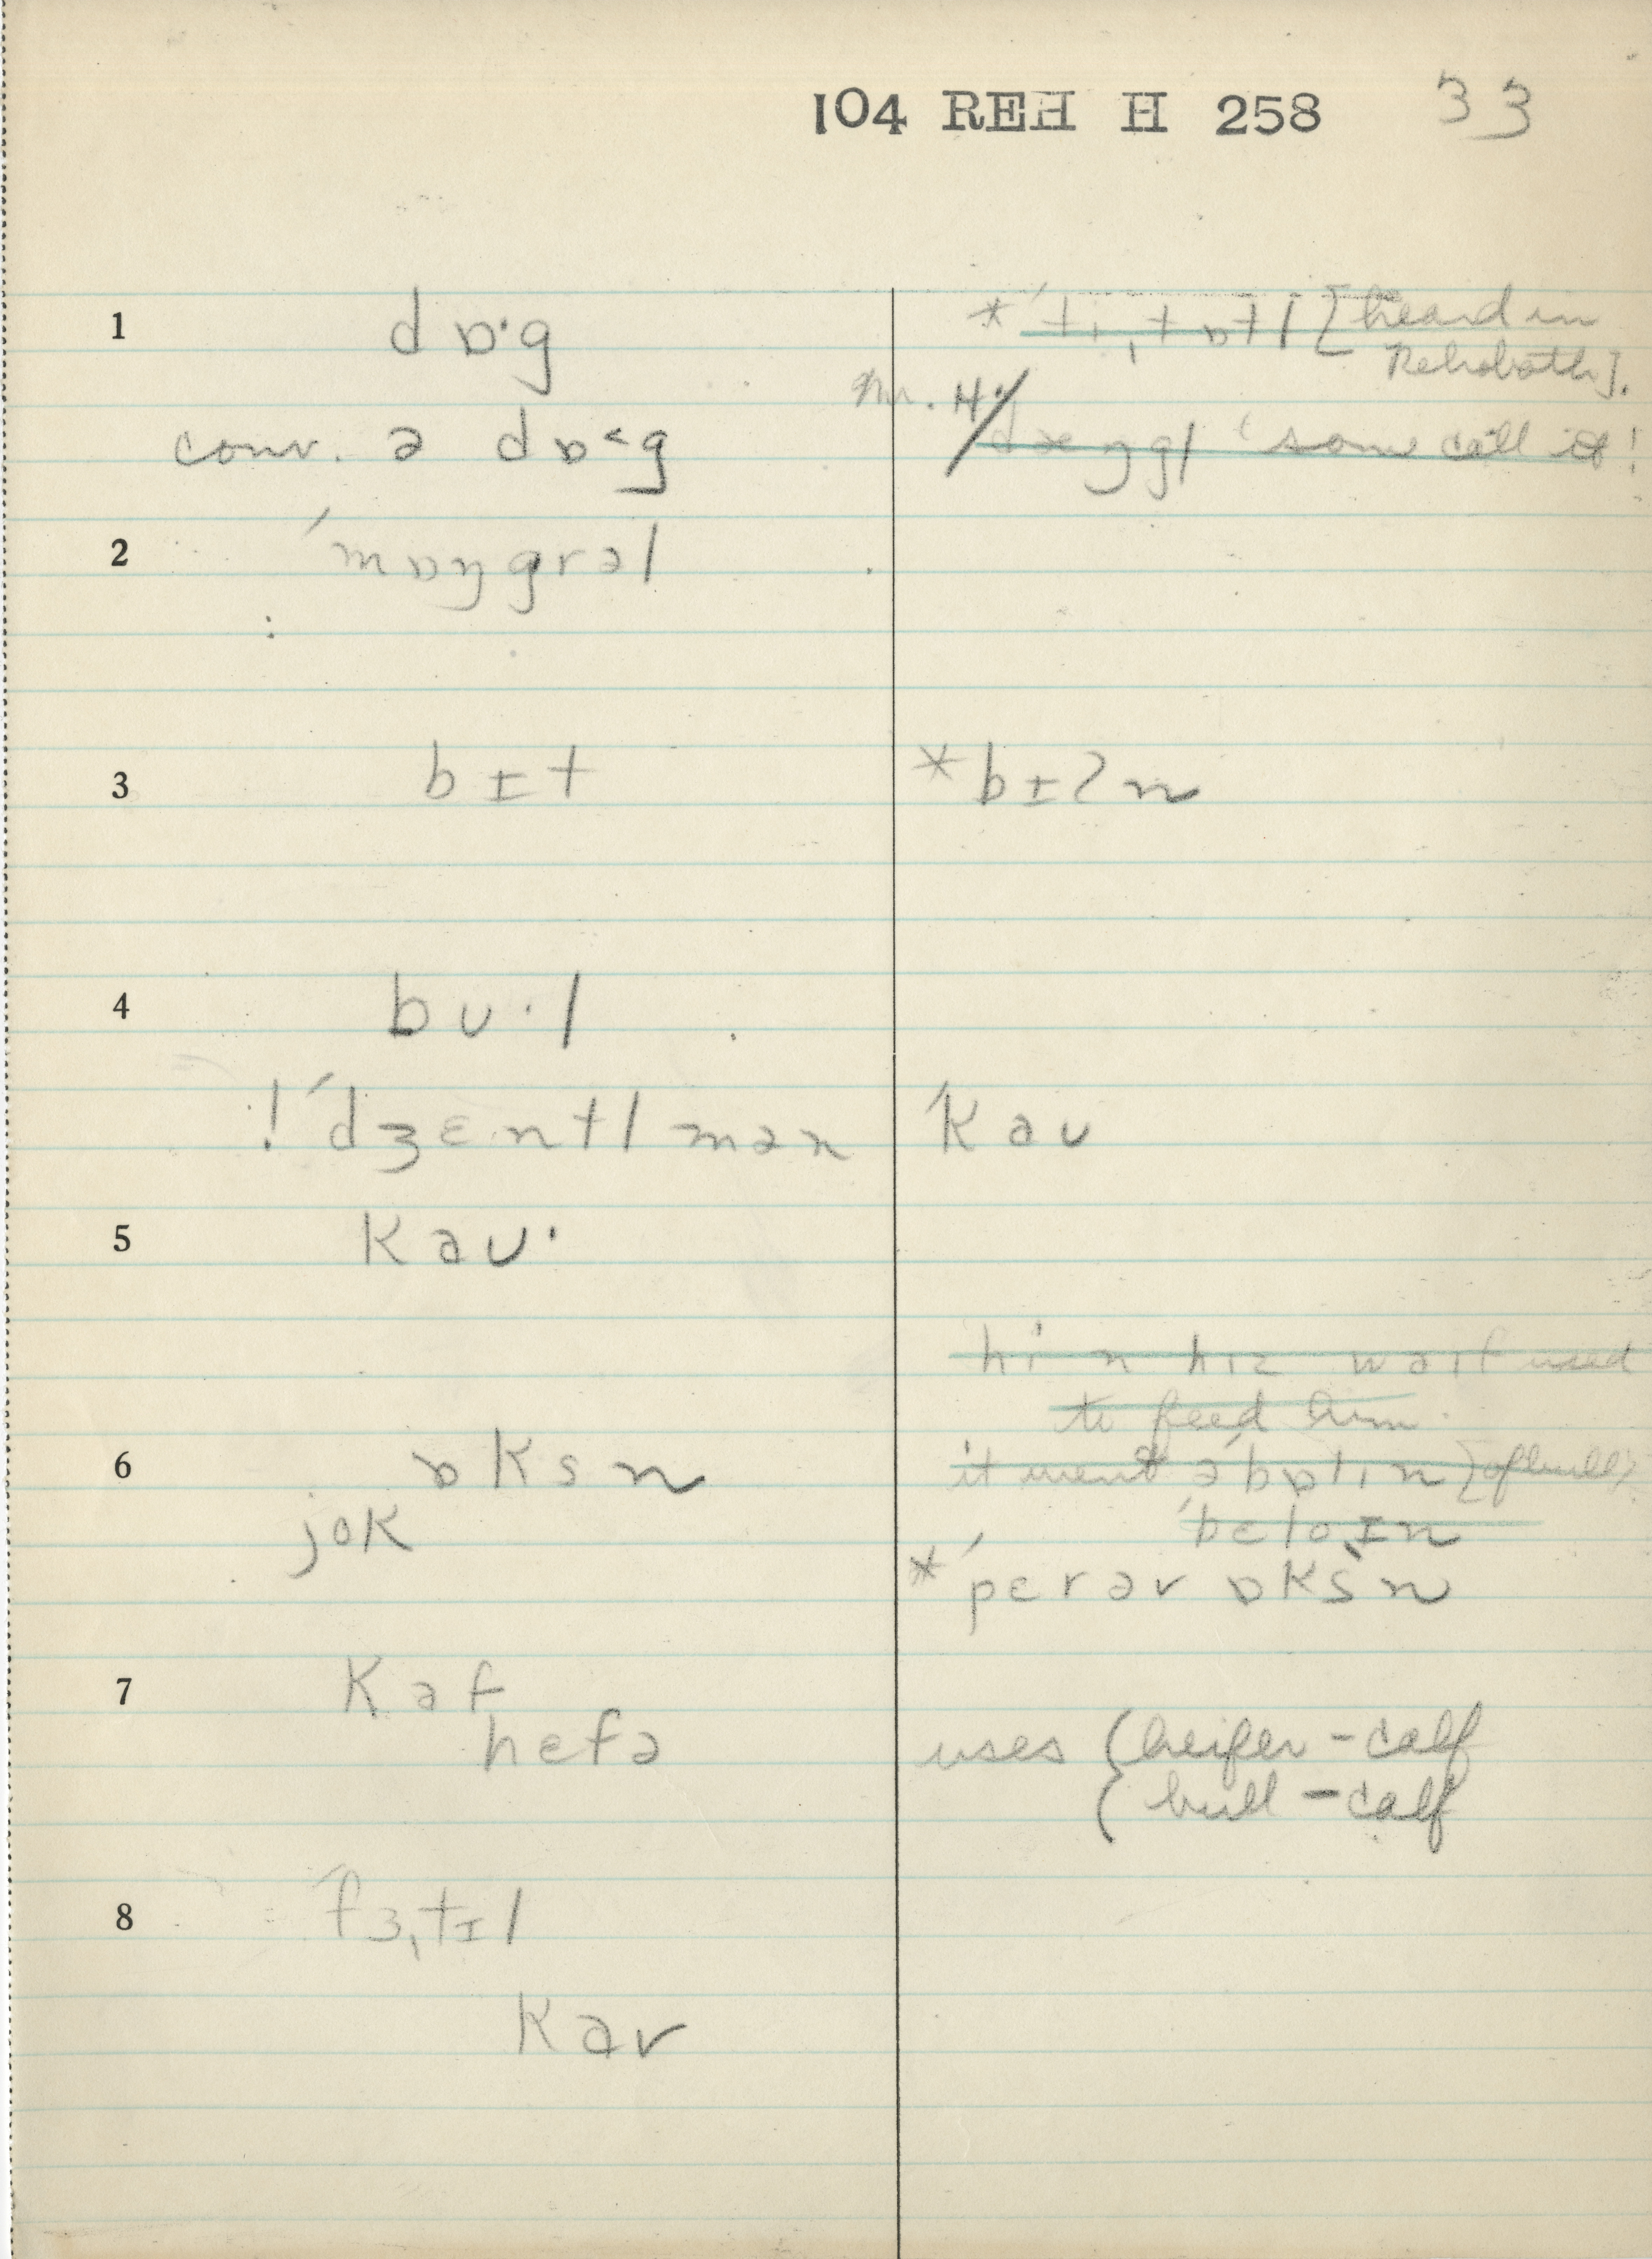 104 REH H 258 33
1 dɒ·g *ˈtiˌtɒtl [heard in
Rehoboth].
Mr. H.
conv. ə dɒ˂g dæŋgl 'some call it!
2 ˈmɒŋgrəl
3 bɪt *bɪʔn
4 bʊ·l
! ˈdʒɛntlmən ˈkaʊ
5 kaʊ·
hi n hɪz waɪf used
to feed him.
6 ɒksn it went əˈbɒlɪn [of bull]
jok ˈbɛloɪn
*ˈpɛrər ɒksn
7 kaf
hɛfə uses { heifer-calf
{ bull-calf
8 ˈfɜˌtɪl
kav